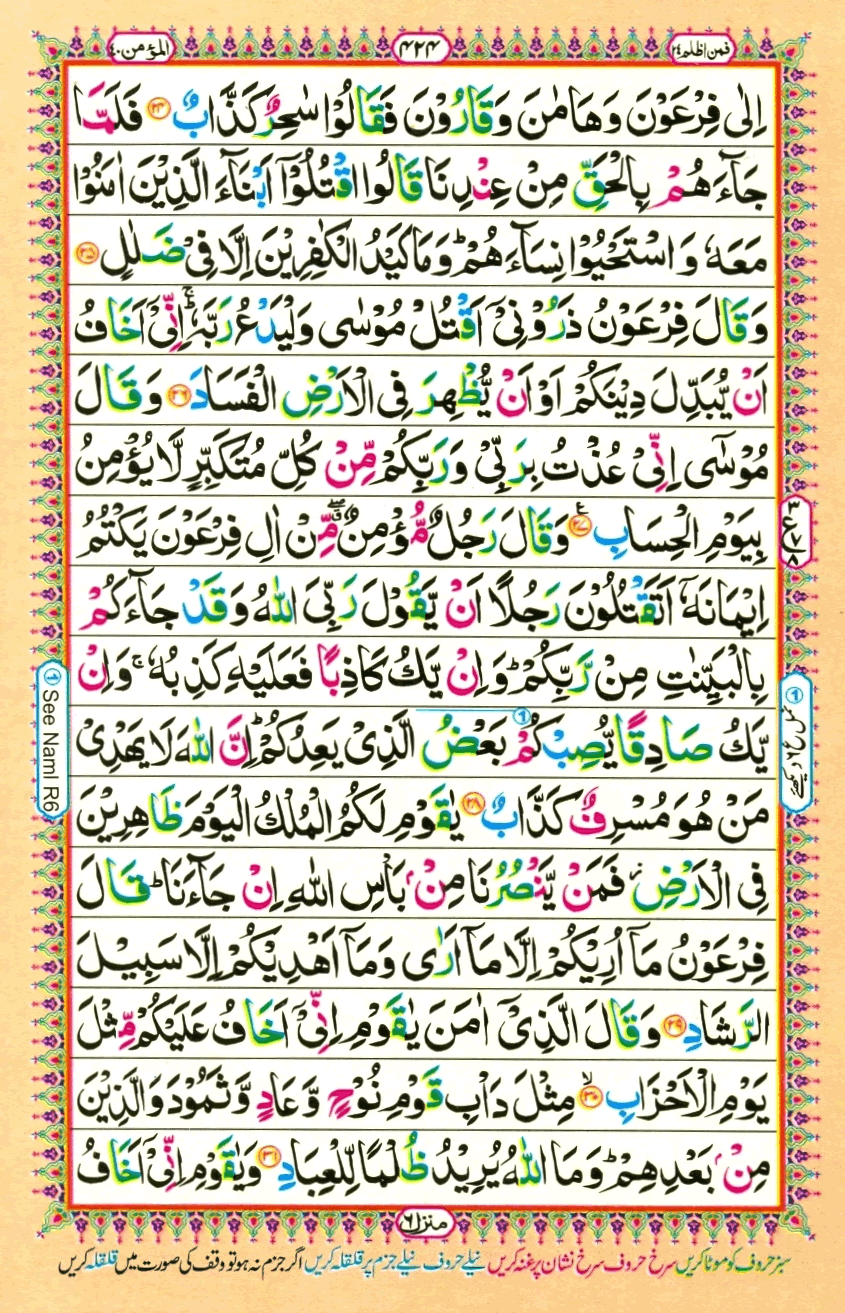 فمن اظلم ٢٤ ٤٢٤ المؤمن ٤٠
اِلٰى فِرْعَوْنَ وَهَامٰنَ وَقَارُوْنَ فَقَالُوْا سٰحِرٌ كَذَّابٌ ۝٢٤ فَلَمَّا
جَآءَهُمْ بِالْحَقِّ مِنْ عِنْدِنَا قَالُوا اقْتُلُوْٓا اَبْنَآءَ الَّذِيْنَ اٰمَنُوْا
مَعَهٗ وَاسْتَحْيُوْا نِسَآءَهُمْ ؕ وَمَا كَيْدُ الْكٰفِرِيْنَ اِلَّا فِىْ ضَلٰلٍ ۝٢٥
وَقَالَ فِرْعَوْنُ ذَرُوْنِىْٓ اَقْتُلْ مُوْسٰى وَلْيَدْعُ رَبَّهٗ ۚ اِنِّىْٓ اَخَافُ
اَنْ يُّبَدِّلَ دِيْنَكُمْ اَوْ اَنْ يُّظْهِرَ فِى الْاَرْضِ الْفَسَادَ ۝٢٦ وَقَالَ
مُوْسٰٓى اِنِّىْ عُذْتُ بِرَبِّىْ وَرَبِّكُمْ مِّنْ كُلِّ مُتَكَبِّرٍ لَّا يُؤْمِنُ
بِيَوْمِ الْحِسَابِ ۝٢٧ ع وَقَالَ رَجُلٌ مُّؤْمِنٌ ۖ مِّنْ اٰلِ فِرْعَوْنَ يَكْتُمُ
اِيْمَانَهٗٓ اَتَقْتُلُوْنَ رَجُلًا اَنْ يَّقُوْلَ رَبِّىَ اللّٰهُ وَقَدْ جَآءَكُمْ
بِالْبَيِّنٰتِ مِنْ رَّبِّكُمْ ؕ وَاِنْ يَّكُ كَاذِبًا فَعَلَيْهِ كَذِبُهٗ ۚ وَاِنْ
يَّكُ صَادِقًا يُّصِبْكُمْ ① بَعْضُ الَّذِىْ يَعِدُكُمْ ؕ اِنَّ اللّٰهَ لَا يَهْدِىْ
مَنْ هُوَ مُسْرِفٌ كَذَّابٌ ۝٢٨ يٰقَوْمِ لَكُمُ الْمُلْكُ الْيَوْمَ ظَاهِرِيْنَ
فِى الْاَرْضِ ۫ فَمَنْ يَّنْصُرُنَا مِنْۢ بَاْسِ اللّٰهِ اِنْ جَآءَنَا ؕ قَالَ
فِرْعَوْنُ مَآ اُرِيْكُمْ اِلَّا مَآ اَرٰى وَمَآ اَهْدِيْكُمْ اِلَّا سَبِيْلَ
الرَّشَادِ ۝٢٩ وَقَالَ الَّذِىْٓ اٰمَنَ يٰقَوْمِ اِنِّىْٓ اَخَافُ عَلَيْكُمْ مِّثْلَ
يَوْمِ الْاَحْزَابِ ۝٣٠ۙ مِثْلَ دَاْبِ قَوْمِ نُوْحٍ وَّعَادٍ وَّثَمُوْدَ وَالَّذِيْنَ
مِنْۢ بَعْدِهِمْ ؕ وَمَا اللّٰهُ يُرِيْدُ ظُلْمًا لِّلْعِبَادِ ۝٣١ وَيٰقَوْمِ اِنِّىْٓ اَخَافُ
① See Naml R6
منزل ٦
سبز حروف کو موٹا کریں سرخ حروف سرخ نشان پر غنہ کریں نیلے حروف نیلے جزم پر قلقلہ کریں اگر جزم نہ ہو تو وقف کی صورت میں قلقلہ کریں